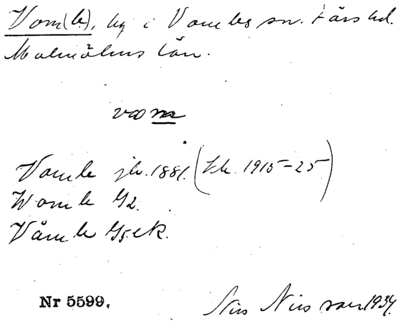 Vom(b), by i Vombs sn. Färs hd.
Malmöhus län.
vom
Vomb jb. 1881. (Lk. 1915-25)
Womb G2.
Våmb G5
Nr 5599.
Nils Nilsson 1934.